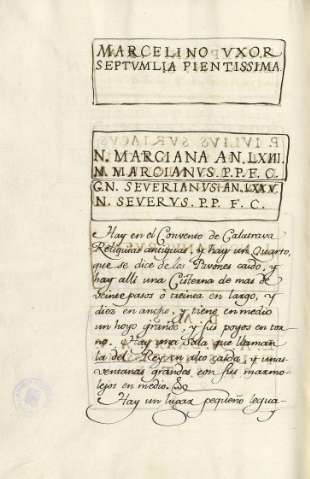 MARCELINO VXOR
SEPTVMLIA PIENTISSIMA
N. MARCIANA AN. LXIII.
M. MARCIANVS. P. P. F. C.
GN. SEVERIANVS. AN. LXXV.
N. SEVERVS. P. P. F. C.
Hay en el Convento de Calatrava
Reliquias antiguas, y hay un Quarto,
que se dice de los Pavones caido, y
hay alli una Cisterna de mas de
veinte pasos ò treinta en largo, y
diez en ancho, y tiene en medio
un hoyo grande, y sus poyos en tor-
no. Hay una Sala que llaman
la del Rey en alto caida, y unas
ventanas grandes con sus marmo-
lejos en medio.
Hay un lugar pequeño legua-